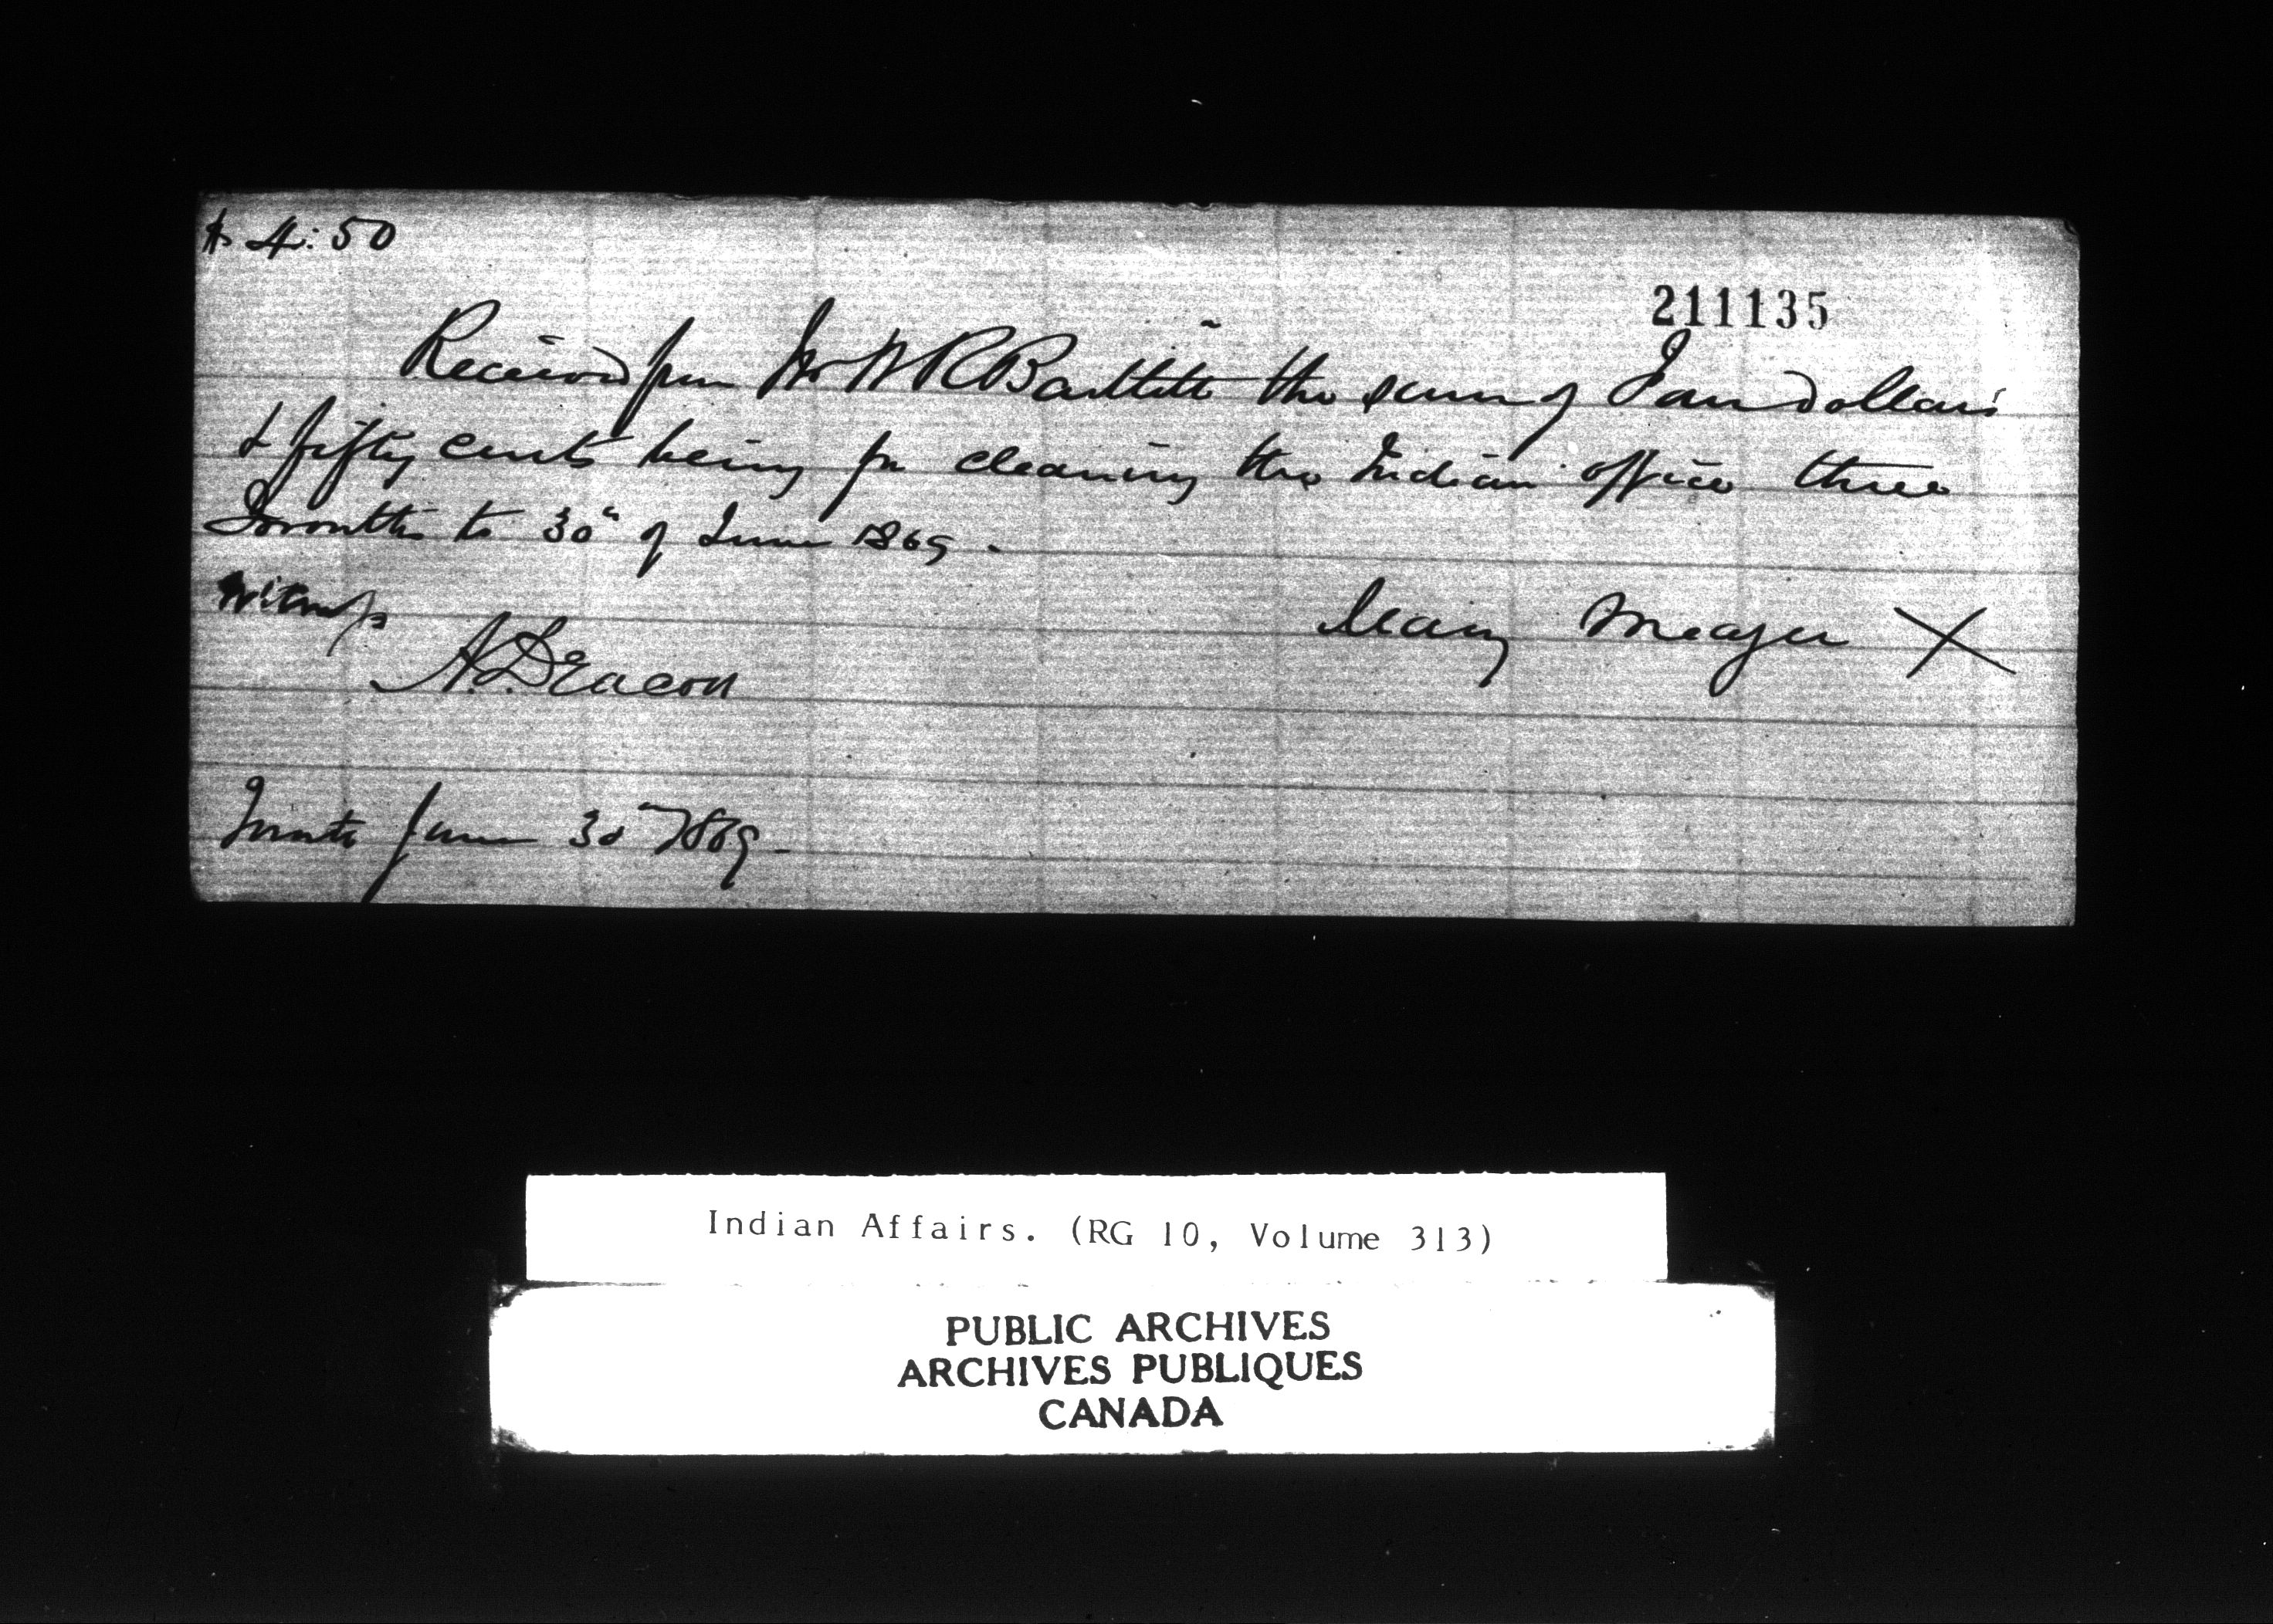 $ 4:50
211135
Received from Mr W R Bartlett the sum of Four dollars
& fifty cents being for cleaning the Indian office three
months to 30" of June 1869 -
Witness
Mary Meager X
A. Deacon
Toronto June 30th 1869 -
Indian Affairs. (RG 10, Volume 313)
PUBLIC ARCHIVES
ARCHIVES PUBLIQUES
CANADA